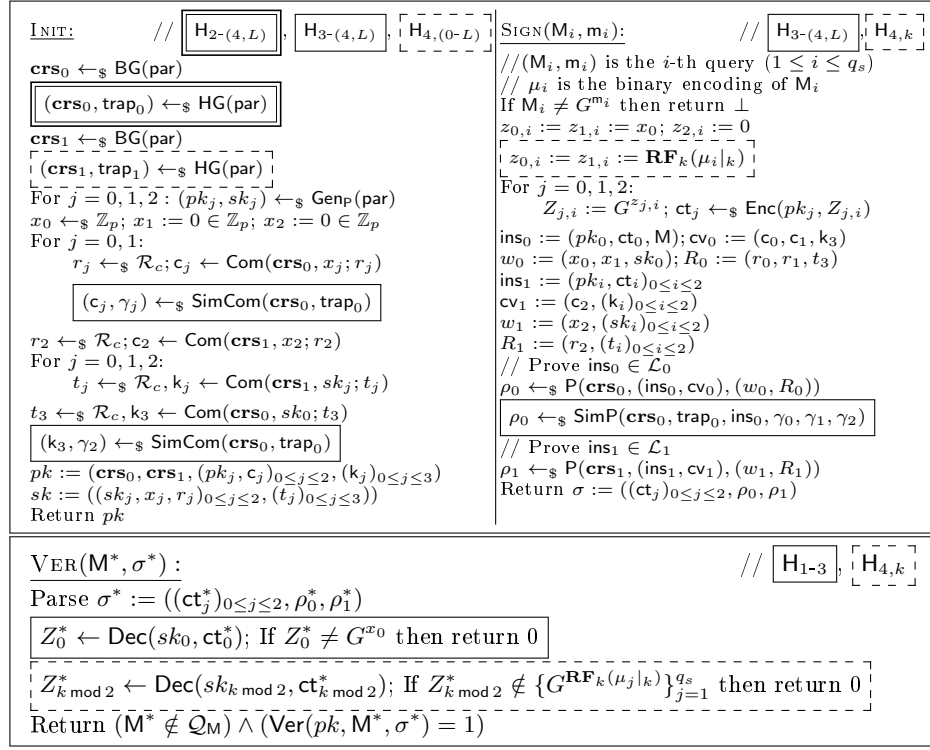 INIT: // H_{2-(4,L)}, H_{3-(4,L)}, H_{4,(0-L)}
crs_0 ←_$ BG(par)
(crs_0, trap_0) ←_$ HG(par)
crs_1 ←_$ BG(par)
(crs_1, trap_1) ←_$ HG(par)
For j = 0, 1, 2 : (pk_j, sk_j) ←_$ Gen_P(par)
x_0 ←_$ ℤ_p; x_1 := 0 ∈ ℤ_p; x_2 := 0 ∈ ℤ_p
For j = 0, 1:
r_j ←_$ R_c; c_j ← Com(crs_0, x_j; r_j)
(c_j, γ_j) ←_$ SimCom(crs_0, trap_0)
r_2 ←_$ R_c; c_2 ← Com(crs_1, x_2; r_2)
For j = 0, 1, 2:
t_j ←_$ R_c, k_j ← Com(crs_1, sk_j; t_j)
t_3 ←_$ R_c, k_3 ← Com(crs_0, sk_0; t_3)
(k_3, γ_2) ←_$ SimCom(crs_0, trap_0)
pk := (crs_0, crs_1, (pk_j, c_j)_{0≤j≤2}, (k_j)_{0≤j≤3})
sk := ((sk_j, x_j, r_j)_{0≤j≤2}, (t_j)_{0≤j≤3}))
Return pk
SIGN(M_i, m_i): // H_{3-(4,L)}, H_{4,k}
//(M_i, m_i) is the i-th query (1 ≤ i ≤ q_s)
// μ_i is the binary encoding of M_i
If M_i ≠ G^{m_i} then return ⊥
z_{0,i} := z_{1,i} := x_0; z_{2,i} := 0
z_{0,i} := z_{1,i} := RF_k(μ_i|_k)
For j = 0, 1, 2:
Z_{j,i} := G^{z_{j,i}}; ct_j ←_$ Enc(pk_j, Z_{j,i})
ins_0 := (pk_0, ct_0, M); cv_0 := (c_0, c_1, k_3)
w_0 := (x_0, x_1, sk_0); R_0 := (r_0, r_1, t_3)
ins_1 := (pk_i, ct_i)_{0≤i≤2}
cv_1 := (c_2, (k_i)_{0≤i≤2})
w_1 := (x_2, (sk_i)_{0≤i≤2})
R_1 := (r_2, (t_i)_{0≤i≤2})
// Prove ins_0 ∈ L_0
ρ_0 ←_$ P(crs_0, (ins_0, cv_0), (w_0, R_0))
ρ_0 ←_$ SimP(crs_0, trap_0, ins_0, γ_0, γ_1, γ_2)
// Prove ins_1 ∈ L_1
ρ_1 ←_$ P(crs_1, (ins_1, cv_1), (w_1, R_1))
Return σ := ((ct_j)_{0≤j≤2}, ρ_0, ρ_1)
VER(M*, σ*) : // H_{1-3}, H_{4,k}
Parse σ* := ((ct*_j)_{0≤j≤2}, ρ*_0, ρ*_1)
Z*_0 ← Dec(sk_0, ct*_0); If Z*_0 ≠ G^{x_0} then return 0
Z*_{k mod 2} ← Dec(sk_{k mod 2}, ct*_{k mod 2}); If Z*_{k mod 2} ∉ {G^{RF_k(μ_j|_k)}}^{q_s}_{j=1} then return 0
Return (M* ∉ Q_M) ∧ (Ver(pk, M*, σ*) = 1)